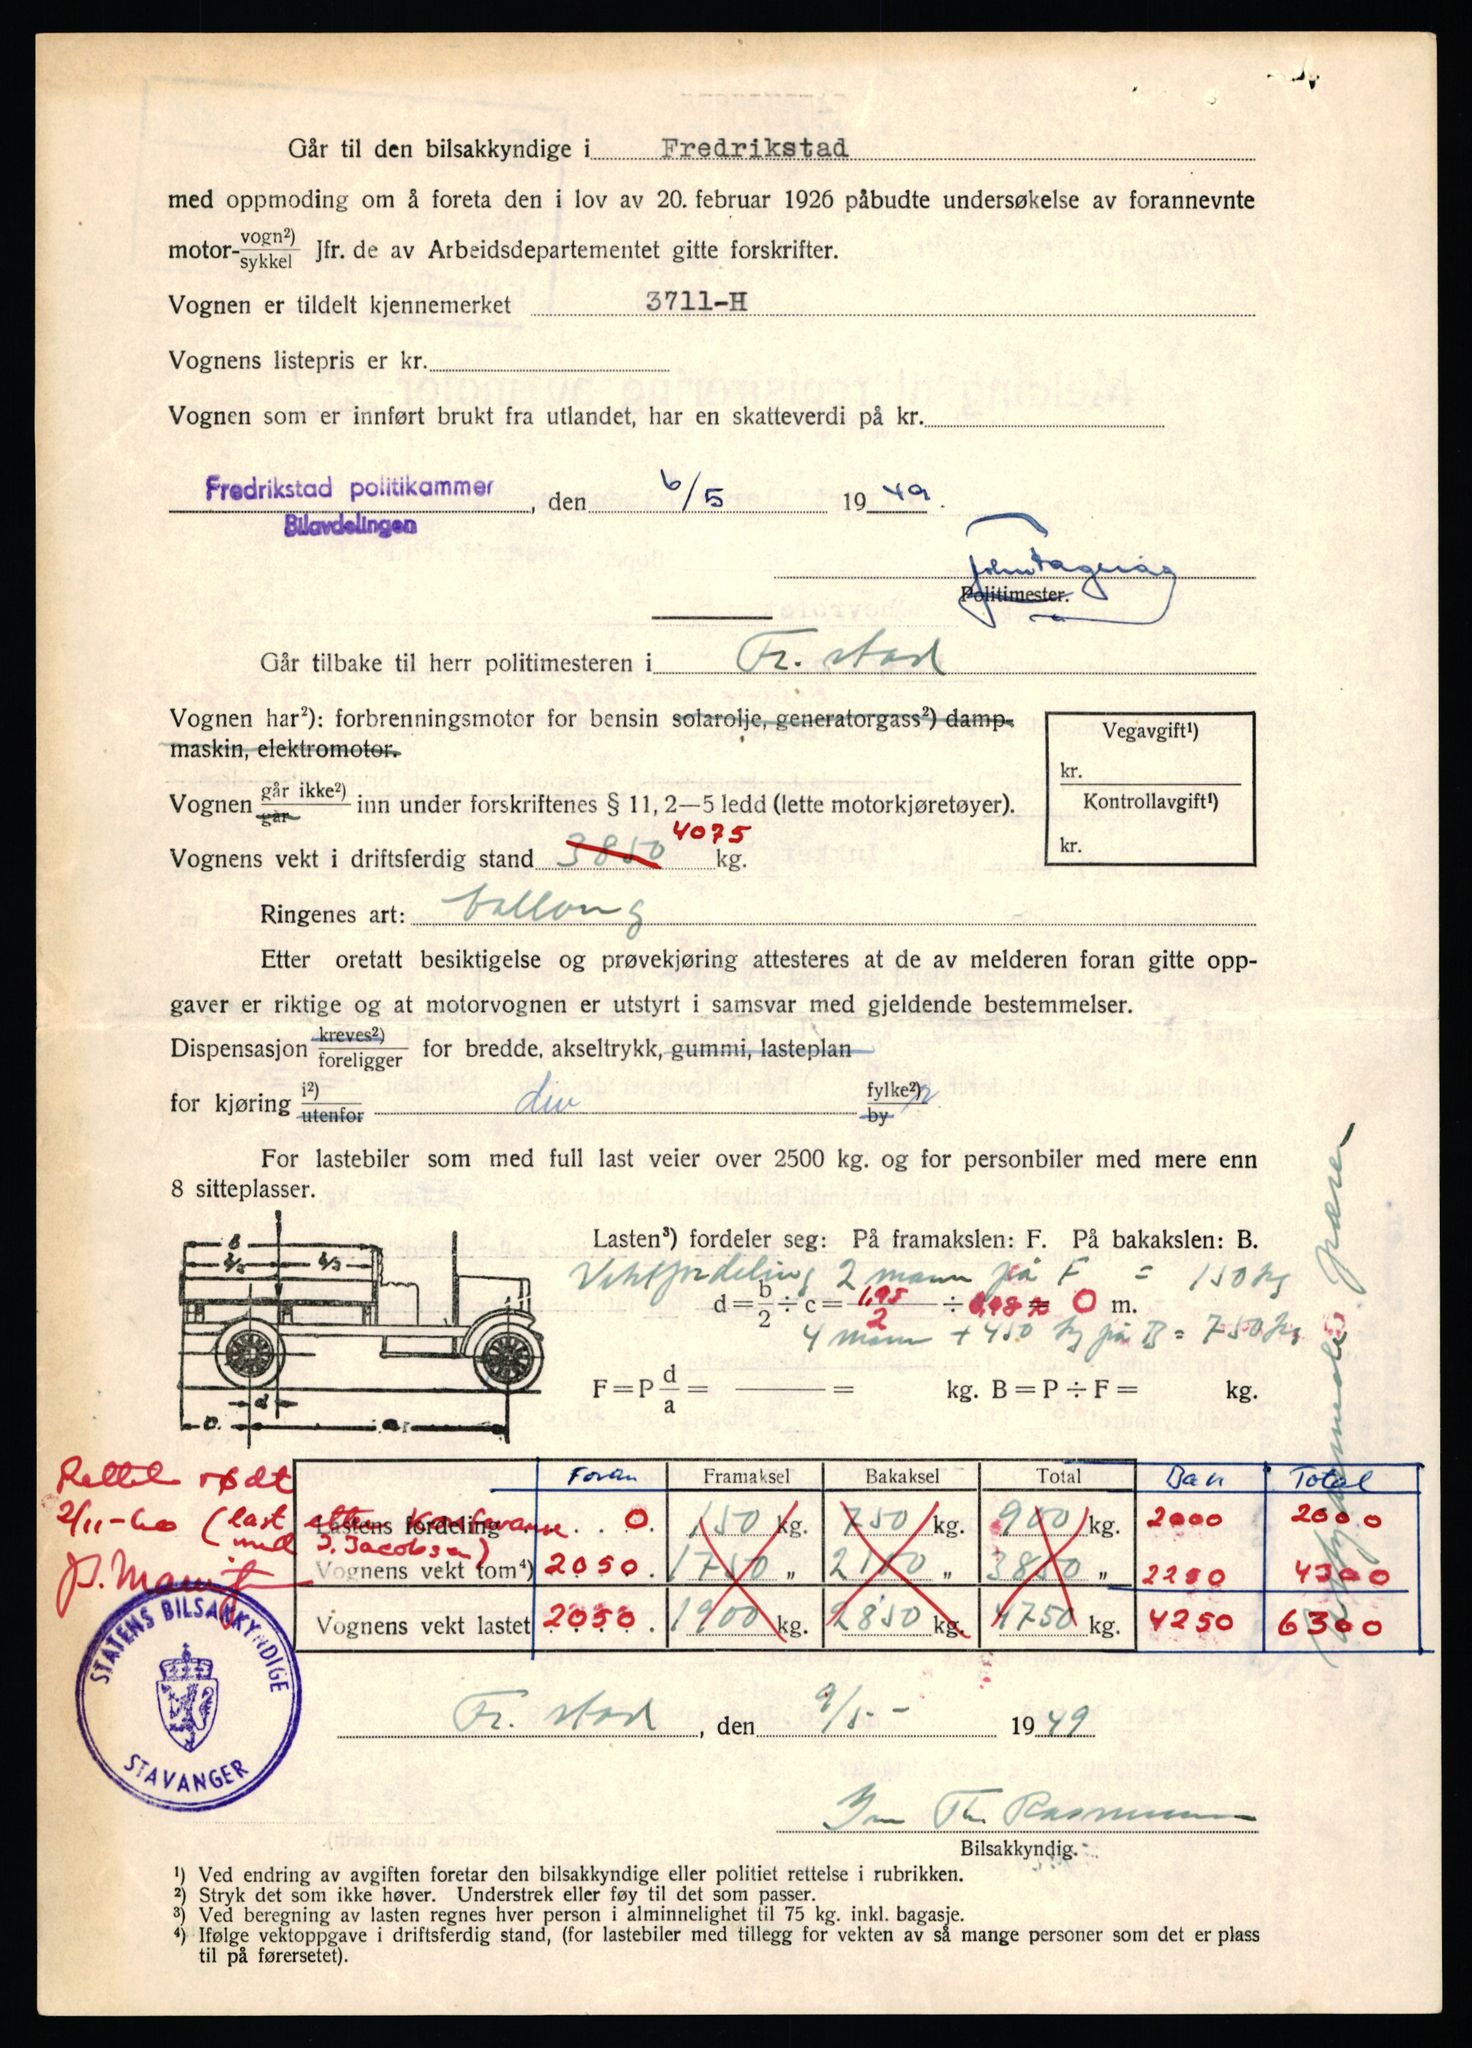 Går til den bilsakkyndige i Fredrikstad
med oppmoding om å foreta den i lov av 20. februar 1926 påbudte undersøkelse av forannevnte
motor- vogn²) / sykkel Jfr. de av Arbeidsdepartementet gitte forskrifter.
Vognen er tildelt kjennemerket 3711-H
Vognens listepris er kr.
Vognen som er innført brukt fra utlandet, har en skatteverdi på kr.
Fredrikstad politikammer, den 6/5 1949.
Bilavdelingen
Politimester.
Går tilbake til herr politimesteren i Fr. stad
Vognen har²): forbrenningsmotor for bensin solarolje, generatorgass²) damp-
maskin, elektromotor.
Vegavgift¹)
kr.
Kontrollavgift¹)
kr.
Vognen går ikke²) / går inn under forskriftenes § 11, 2—5 ledd (lette motorkjøretøyer).
Vognens vekt i driftsferdig stand 3850 4075 kg.
Ringenes art: ballong
Etter oretatt besiktigelse og prøvekjøring attesteres at de av melderen foran gitte opp-
gaver er riktige og at motorvognen er utstyrt i samsvar med gjeldende bestemmelser.
Dispensasjon kreves²) / foreligger for bredde, akseltrykk, gummi, lasteplan
for kjøring i²) / utenfor div fylke²)r / by
For lastebiler som med full last veier over 2500 kg. og for personbiler med mere enn
8 sitteplasser.
Lasten³) fordeler seg: På framakslen: F. På bakakslen: B.
Vektfordeling 2 mann på F = 150 kg
d = b/2 ÷ c = 1,95/2 ÷ 0,98 = 0 m.
4 mann + 450 kg på B = 750 kg
F = P d/a = — = kg. B = P ÷ F = kg.
Rettet rødt
2/11-60 (last etter
med J. Jacobsen)
Foran Framaksel Bakaksel Total Bak Total
Lastens fordeling 0 150 kg. 750 kg. 900 kg. 2000 2000
Vognens vekt tom⁴) 2050 1750 „ 2100 „ 3850 „ 2250 4300
Vognens vekt lastet 2050 1900 kg. 2850 kg. 4750 kg. 4250 6300
STATENS BILSAKKYNDIGE
STAVANGER
Fr. stad, den 9/5 - 1949
Th. Rasmussen
Bilsakkyndig.
¹) Ved endring av avgiften foretar den bilsakkyndige eller politiet rettelse i rubrikken.
²) Stryk det som ikke høver. Understrek eller føy til det som passer.
³) Ved beregning av lasten regnes hver person i alminnelighet til 75 kg. inkl. bagasje.
⁴) Ifølge vektoppgave i driftsferdig stand, (for lastebiler med tillegg for vekten av så mange personer som det er plass
til på førersetet).